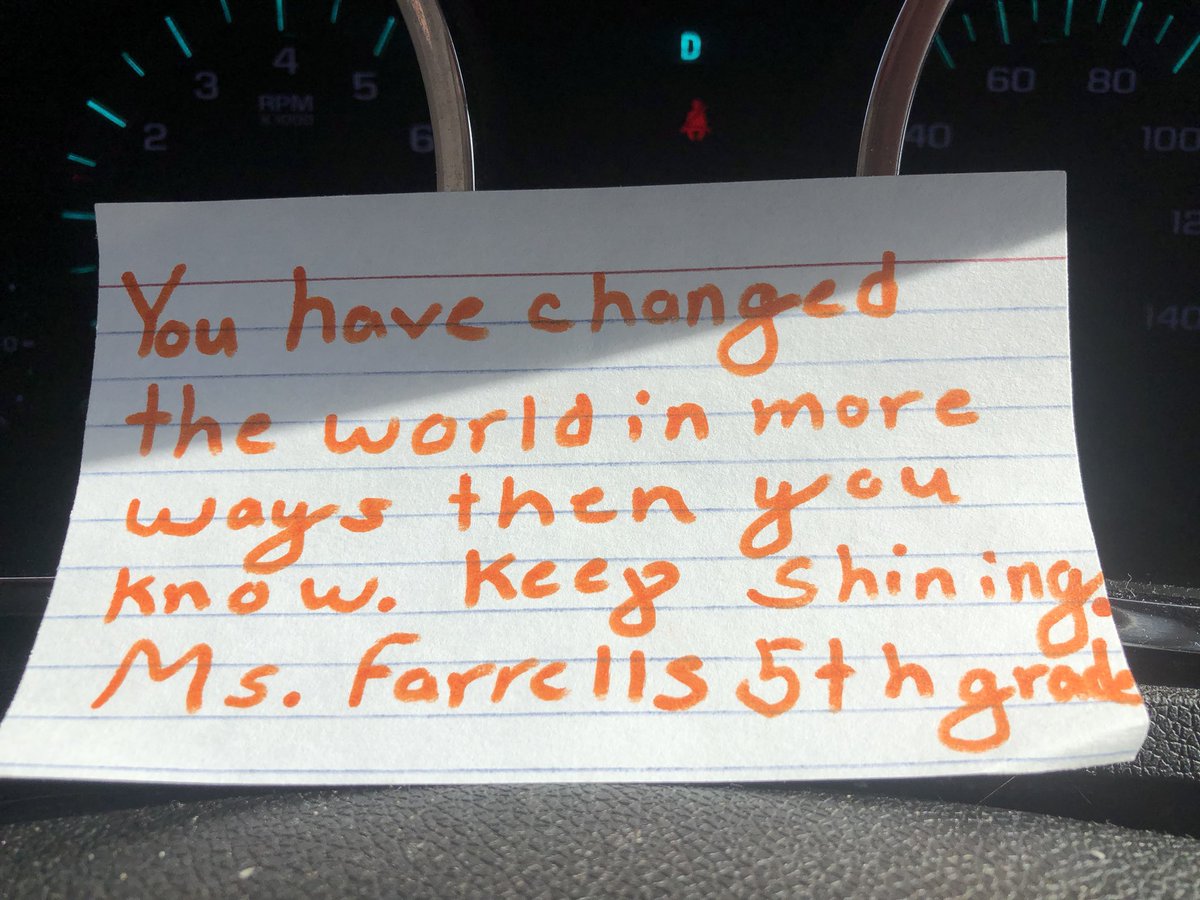 3 4 5
RPM
2 6
D
60 80
40 100
12
140
You have changed
the world in more
ways then you
know. Keep shining.
Ms. Farrells 5th grade